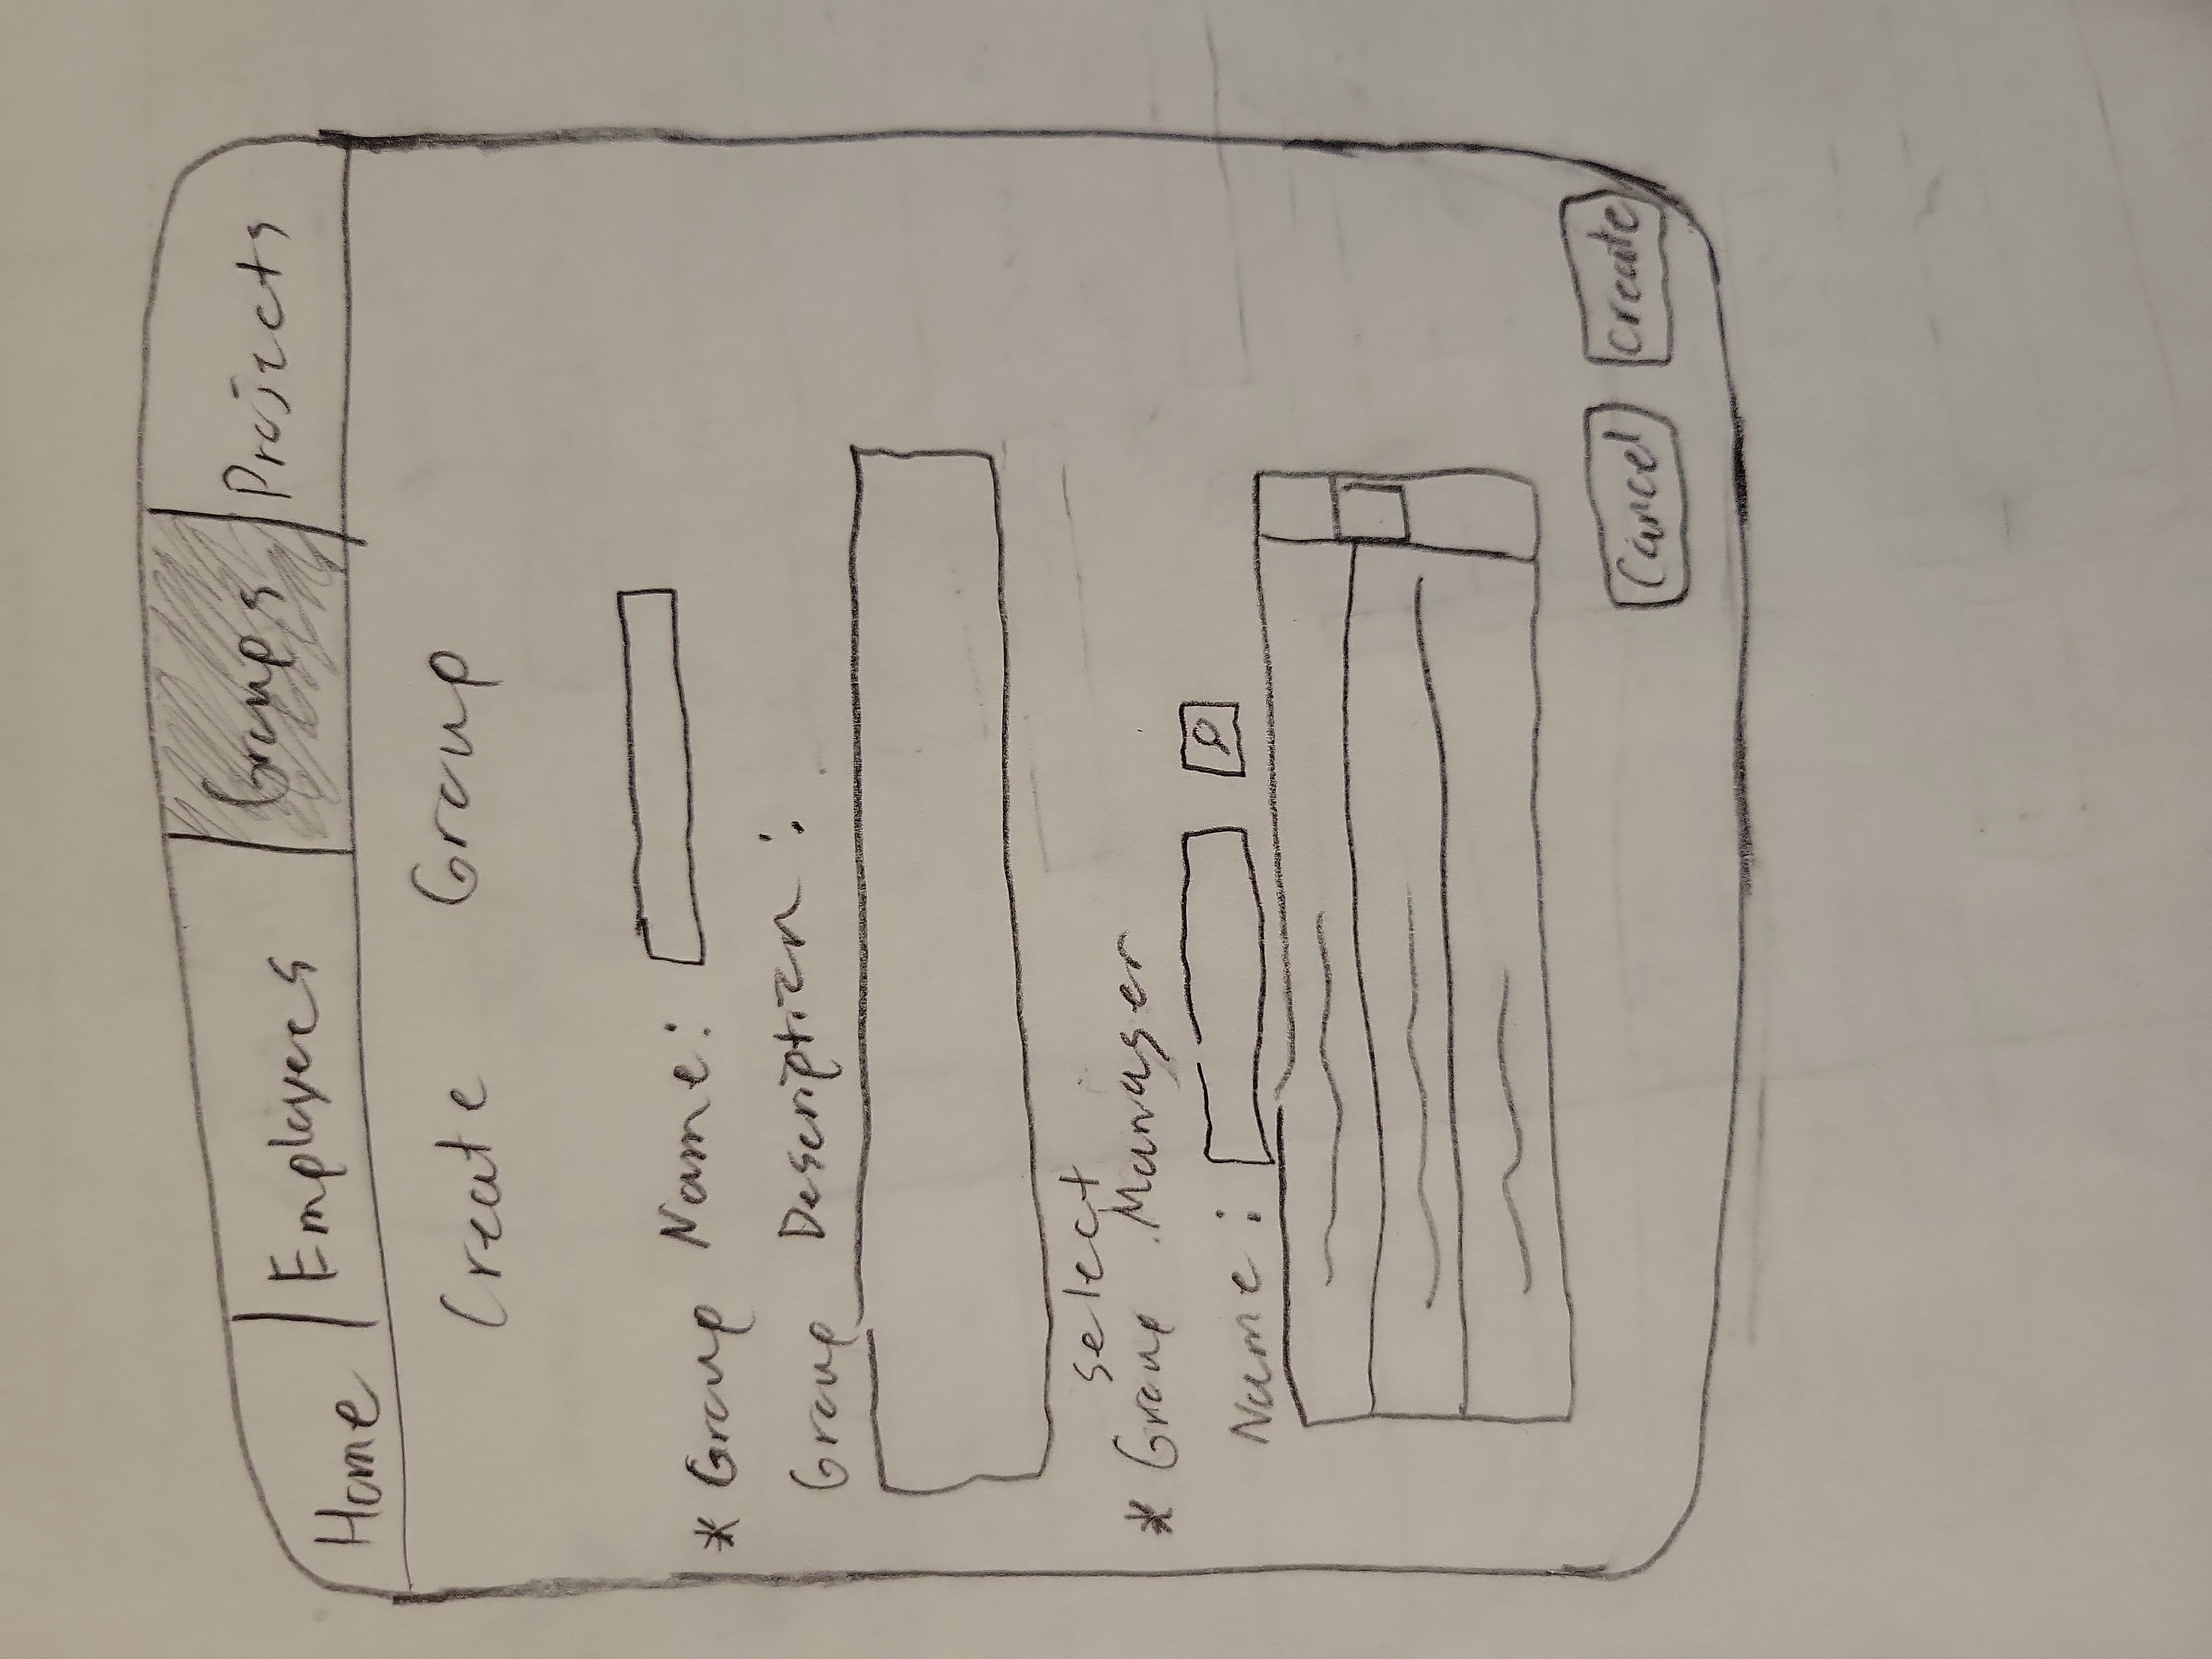 Home Employees Groups Projects
Create Group
* Group Name:
Group Description:
select
* Group Manager
Name:
Cancel Create